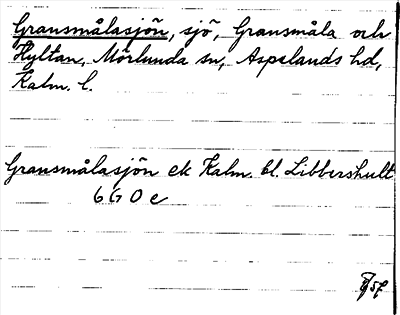 Gransmålasjön, sjö, Gransmåla och
Hyltan, Mörlunda sn, Aspelands hd,
Kalm. l.
Gransmålasjön ek Kalm. bl. Libbershult
6 G 0 e